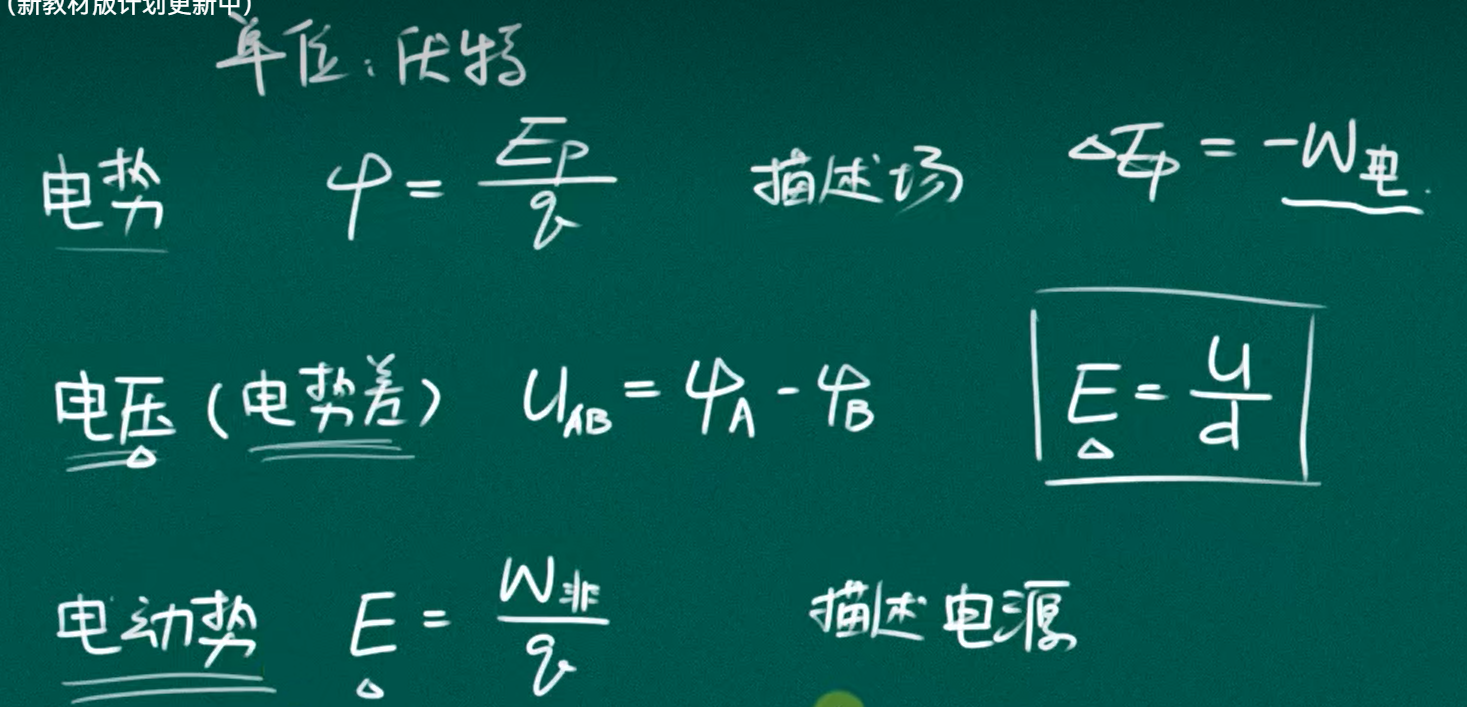 (新教材版计划更新中)
单位：伏特
电势 φ = Ep/q 描述场 ΔEp = -W电
电压（电势差） UAB = φA - φB E = U/d
电动势 E = W非/q 描述电源